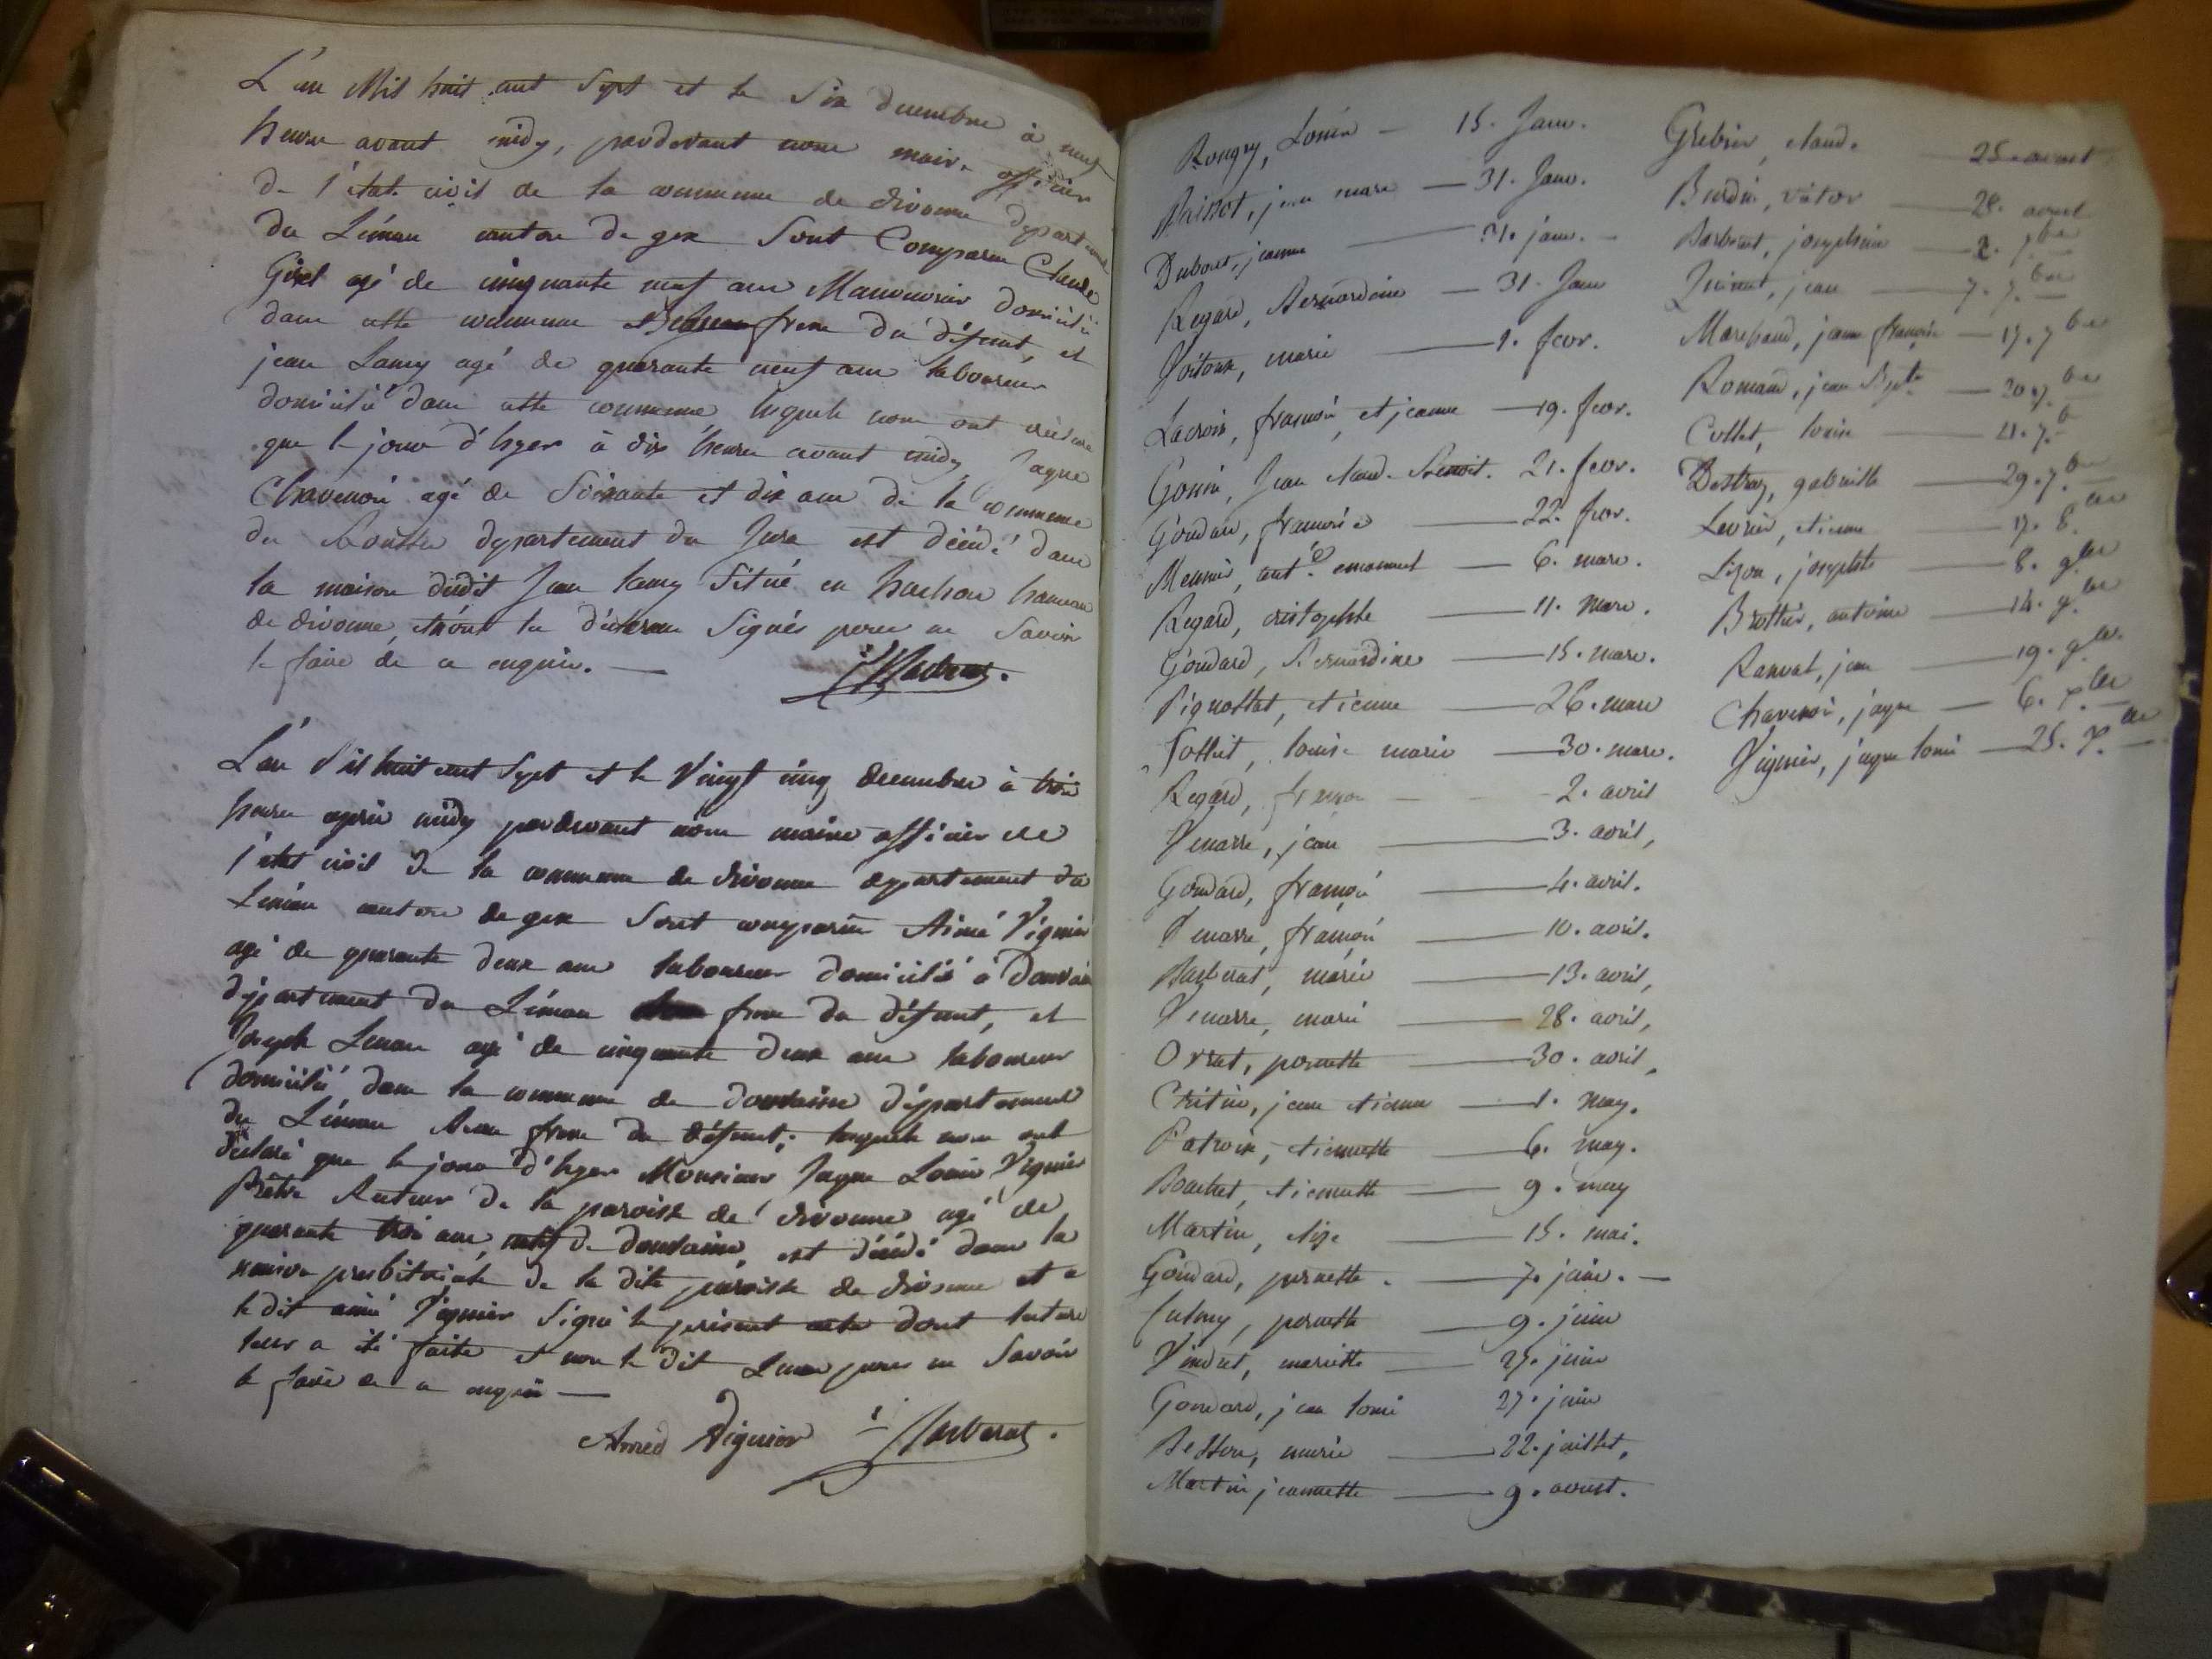 L'an Mil huit cent Sept et le Six decembre à neuf
heure avant midy, pardevant nous maire officier
de l'état civil de la commune de divonne departement
du Léman canton de gex Sont Comparu Claude
Girel agé de cinquante neuf ans Manouvrier domicilié
dans cette commune frere du défunt, et
jean Lamy agé de quarante neuf ans laboureur
domicilié dans cette commune lequels nous ont déclaré
que le jour d'hyer à dix heures avant midy Jaque
Chavenoi agé de Soixante et dix ans de la commune
du departement du Jura est décédé dans
la maison dudit Jean lamy Situé en hameau
de divonne, et n'ont les déclarans Signés pour ne Savoir
le faire de ce enquis.
L'an Mil huit cent Sept et le Vingt cinq decembre à trois
heures après midy pardevant nous maire officier de
l'état civil de la commune de divonne departement du
Léman canton de gex Sont comparus Aimé Vignier
agé de quarante deux ans laboureur domicilié à Douvaine
département du Léman frere du défunt, et
Joseph agé de cinquante deux ans laboureur
domicilié dans la commune de douvaine département
du Léman Beau frere du défunt; lesquels nous ont
déclaré que le jour d'hyer Monsieur Jaque Louis Vignier
Prêtre Recteur de la paroisse de divonne agé de
quarante trois ans, natif de douvaine, est décédé dans la
maison presbiteriale de la dite paroisse de divonne et a
le dit aimé Vignier Signé le present acte dont lecture
leur a été faite et non le dit pour ne Savoir
le faire de ce enquis
Amed Vignier Barberat.
Rougny, Louis — 15. Janv.
jean marc — 31. Janv.
Dubout, jeanne — 31. janv.
Regard, Bernardine — 31. Janv
marie — 1. fevr.
Lacroix, françois, et jeanne — 19. fevr.
Gonin, Jean claude Benoit. 21. fevr.
Goudard, — 22. fevr.
Meunier, emanuel — 6. mars.
Regard, cristophle — 11. Mars.
Goudard, Bernardine — 15. mars.
Pignollet, etienne — 26. mars
louise marie — 30. mars.
Regard, — 2. avril
jean — 3. avril,
Goudard, françois — 4. avril.
françois — 10. avril.
Barberat, marie — 13. avril,
marie — 28. avril,
Orsat, pernette — 30. avril,
Critin, jean etienne — 1. may.
Patroix, etiennette — 6. may.
Bouchet, etiennette — 9. may
Martin, elize — 15. mai.
Goudard, pernette. — 7. juin. —
pernette — 9. juin
mariette — 27. juin
Goudard, jean louis 27. juin
Besson, marie — 22. juillet,
Martin jeannette — 9. aoust.
Grebier, claude — 25. aoust
Burdin, victor — 28. aoust
Barberat, josephine — 2. 7bre
jean — 7. 7.bre
Marchand, jean françois — 17. 7bre
Romand, jean Bpte. — 20. 7.bre
Collet, louis — 21. 7.b
Destray, gabrielle — 29. 7.bre
Levrier, etienne — 17. 8.bre
Lizon, josephte — 8. 9bre
Brottier, antoine — 14. 9.bre
jean — 19. 9bre.
Chavenoi, jaque — 6. X.bre
Vignier, jaque louis — 25. X.bre